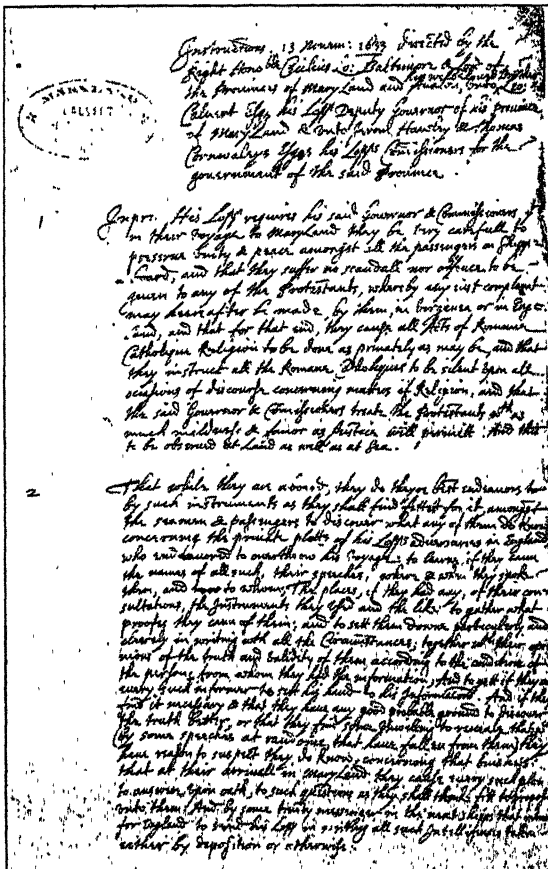 Instructions 13 Novem: 1633 directed by the
Right Honoble Cecilius Lo: Baltimore & Lord of
the Provinces of Mary Land and Avalon unto his well beloved Brother Leo:
Calvert Esqr his Lopps Deputy Governor of his province
of Mary Land & unto Jerom Hawley & Thomas
Cornwaleys Esqrs his Lopps Commissioners for the
government of the said Province.
MARYLAND
CALVERT
1
Inpri: His Lopp requires his said Governor & Commissioners yt
in their voyage to Mary Land they be very carefull to
preserve unity & peace amongst all the passengers on Shipp-
board, and that they suffer no scandall nor offence to be
given to any of the Protestants, whereby any just complaint
may heereafter be made, by them, in Virginea or in Eng-
land, and that for that end, they cause all Acts of Romane
Catholique Religion to be done as privately as may be, and that
they instruct all the Romane Catholiques to be silent upon all
occasions of discourse concerning matters of Religion, and that
the said Governor & Commissioners treate the Protestants wth as
much mildness & favor as Justice will permitt. And this
to be observed at Land as well as at Sea.
2
That while they are aboard, they do theyre best endeavors
by such instruments as they shall find fittest for it, amongst
the seamen & passengers to discover what any of them do know
concerning the private plotts of his Lopps adversaries in England
who endeavored to overthrow his voyage: to learne, if they cann
the names of all such, their speeches, where & when they spoke
them, and to whom; The places, if they had any, of their con-
sultations, the Instruments they used and the like: to gather what
proofes they cann of them; and to sett them downe particulerly and
cleerely in writing with all the Circumstances; together wth their opi-
nions of the truth and validity of them according to the condition of
the persons from whom they had the information, And to gett if they can
every such informer to sett his hand to his Information. And if they
find it necessary & that they have any good probable ground to discover
the truth better, or that they find some unwilling to reveale that wch
(by some speeches at randome, that have fallen from them) they
have reason to suspect they do know concerning that buisness:
that at their arrivall in Mary land they cause every such
to answer upon oath, to such questions as they shall thinke fitt to propose
unto them: And by some trusty messenger in the next shipps that returne
for England to send his Lopp in writing all such Intelligences taken
either by deposition or otherwise.